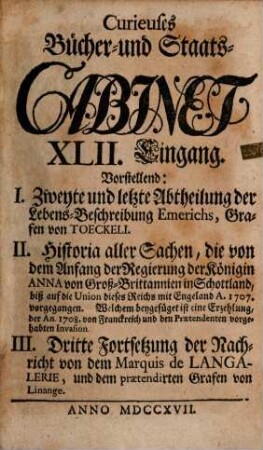 Curieuses
Bücher-und Staats-
CABINET
XLII. Eingang.
Vorstellend:
I. Zweyte und letzte Abtheilung der
Lebens-Beschreibung Emerichs, Gra-
fen von TOECKELI.
II. Historia aller Sachen, die von
dem Anfang der Regierung der Königin
ANNA von Groß-Brittannien in Schottland,
biß auf die Union dieses Reichs mit Engeland A. 1707.
vorgegangen. Welchem beygefüget ist eine Erzehlung,
der An. 1708. von Franckreich und den Prætendenten vorge-
habten Invasion.
III. Dritte Fortsetzung der Nach-
richt von dem Marquis de LANGA-
LERIE, und dem prætendirten Grafen von
Linange.
ANNO MDCCXVII.